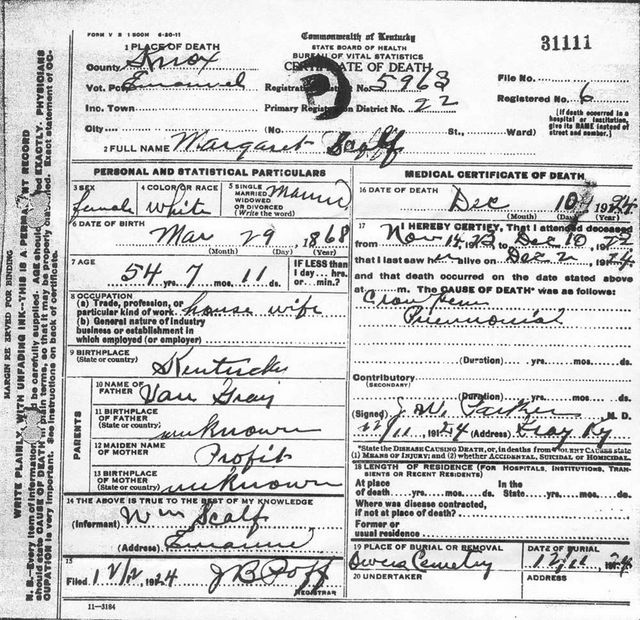 FORM V S 1 500M 6-20-11
Commonwealth of Kentucky
STATE BOARD OF HEALTH
BUREAU OF VITAL STATISTICS
CERTIFICATE OF DEATH
31111
1 PLACE OF DEATH
County Knox
Vot. Pct. Emanuel
Registration District No. 5963
File No.
Inc. Town
Primary Registration District No. 22
Registered No. 6
City (No. St., Ward)
[If death occurred in a hospital or institution, give its NAME instead of street and number.]
2 FULL NAME Margaret Scalf
PERSONAL AND STATISTICAL PARTICULARS
3 SEX female
4 COLOR OR RACE White
5 SINGLE MARRIED WIDOWED OR DIVORCED (Write the word) Married
6 DATE OF BIRTH
Mar 29, 1868
(Month) (Day) (Year)
7 AGE
54 yrs. 7 mos. 11 ds.
IF LESS than 1 day... hrs. or... min.?
8 OCCUPATION
(a) Trade, profession, or particular kind of work house wife
(b) General nature of industry business or establishment in which employed (or employer)
9 BIRTHPLACE (State or country) Kentucky
PARENTS
10 NAME OF FATHER Van Gray
11 BIRTHPLACE OF FATHER (State or country) unknown
12 MAIDEN NAME OF MOTHER Profit
13 BIRTHPLACE OF MOTHER (State or country) unknown
14 THE ABOVE IS TRUE TO THE BEST OF MY KNOWLEDGE
(Informant) Wm Scalf
(Address) Emanuel
15
Filed 12/12, 1924 J B Poff
REGISTRAR
11-3184
MEDICAL CERTIFICATE OF DEATH
16 DATE OF DEATH
Dec 10 1924
(Month) (Day) (Year)
17 I HEREBY CERTIFY, That I attended deceased
from Nov 14, 22 to Dec 10 22
that I last saw h alive on Dec 2 1924
and that death occurred on the date stated above
at m. The CAUSE OF DEATH* was as follows:
Pneumonia
(Duration) yrs. mos. ds.
Contributory (SECONDARY)
(Duration) yrs. mos. ds.
(Signed) J. W. Parker M. D.
12/11 1924 (Address) Gray Ky
*State the DISEASE CAUSING DEATH, or, in deaths from VIOLENT CAUSES state (1) MEANS OF INJURY; and (2) whether ACCIDENTAL, SUICIDAL or HOMICIDAL.
18 LENGTH OF RESIDENCE (FOR HOSPITALS, INSTITUTIONS, TRANSIENTS OR RECENT RESIDENTS)
At place of death yrs. mos. ds. In the State yrs. mos. ds.
Where was disease contracted, if not at place of death?
Former or usual residence
19 PLACE OF BURIAL OR REMOVAL Owens Cemetery
DATE OF BURIAL 12/11 1924
20 UNDERTAKER
ADDRESS
MARGIN RESERVED FOR BINDING
WRITE PLAINLY, WITH UNFADING INK—THIS IS A PERMANENT RECORD
N. B.—Every item of information should be carefully supplied. AGE should be stated EXACTLY. PHYSICIANS
should state CAUSE OF DEATH in plain terms, so that it may be properly classified. Exact statement of OC-
CUPATION is very important. See instructions on back of certificate.